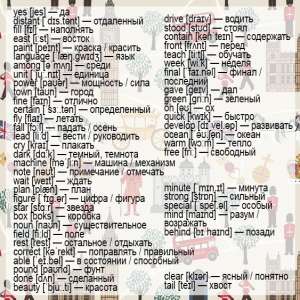 yes [jes] — да
distant [ˈdɪs.tənt] — отдаленный
fill [fɪl] — наполнять
east [iːst] — восток
paint [peɪnt] — краска / красить
language [ˈlæŋ.gwɪdʒ] — язык
among [əˈmʌŋ] — среди
unit [ˈjuː.nɪt] — единица
power [paʊər] — мощность / сила
town [taʊn] — город
fine [faɪn] — отлично
certain [ˈsɜː.tən] — определенный
fly [flaɪ] — летать
fall [fɔːl] — падать / осень
lead [liːd] — вести / руководить
cry [kraɪ] — плакать
dark [dɑːk] — темный, темнота
machine [məˈʃiːn] — машина / механизм
note [nəʊt] — примечание / отмечать
wait [weɪt] — ждать
plan [plæn] — план
figure [ˈfɪg.ər] — цифра / фигура
star [stɑːr] — звезда
box [bɒks] — коробка
noun [naʊn] — существительное
field [fiːld] — поле
rest [rest] — остальное / отдыхать
correct [kəˈrekt] — поправлять / правильный
able [ˈeɪ.bəl] — в состоянии / способный
pound [paʊnd] — фунт
done [dʌn] — сделанный
beauty [ˈbjuː.ti] — красота
drive [draɪv] — водить
stood [stʊd] — стоял
contain [kənˈteɪn] — содержать
front [frʌnt] — перед
teach [tiːtʃ] — обучать
week [wiːk] — неделя
final [ˈfaɪ.nəl] — финал /
последний
gave [geɪv] — дал
green [griːn] — зеленый
oh [əʊ] — ох
quick [kwɪk] — быстро
develop [dɪˈvel.əp] — развивать /
ocean [ˈəʊ.ʃən] — океан
warm [wɔːm] — тепло
free [friː] — свободный
minute [ˈmɪn.ɪt] — минута
strong [strɒŋ] — сильный
special [ˈspeʃ.əl] — особый
mind [maɪnd] — разум
возражать
behind [bɪˈhaɪnd] — позади
clear [klɪər] — ясный / понятно
tail [teɪl] — хвост